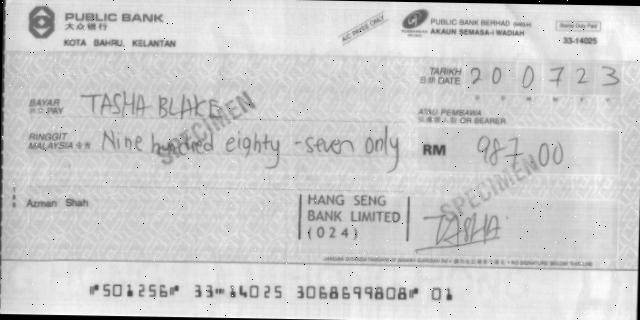 PUBLIC BANK
大众银行
KOTA BAHRU, KELANTAN
A/C PAYEE ONLY
PUBLIC BANK BERHAD
AKAUN SEMASA-i WADIAH
Stamp Duty Paid
33-14025
TARIKH
日期 DATE
2 0 0 7 2 3
BAYAR
PAY
TASHA BLAKE
SPECIMEN
ATAU PEMBAWA
OR BEARER
RINGGIT
MALAYSIA 令吉
Nine hundred eighty - seven only
RM 987.00
SPECIMEN
Azman Shah
HANG SENG
BANK LIMITED
(024)
TASHA
⑈501256⑈ 33⑉14025 3068699808⑈ 01